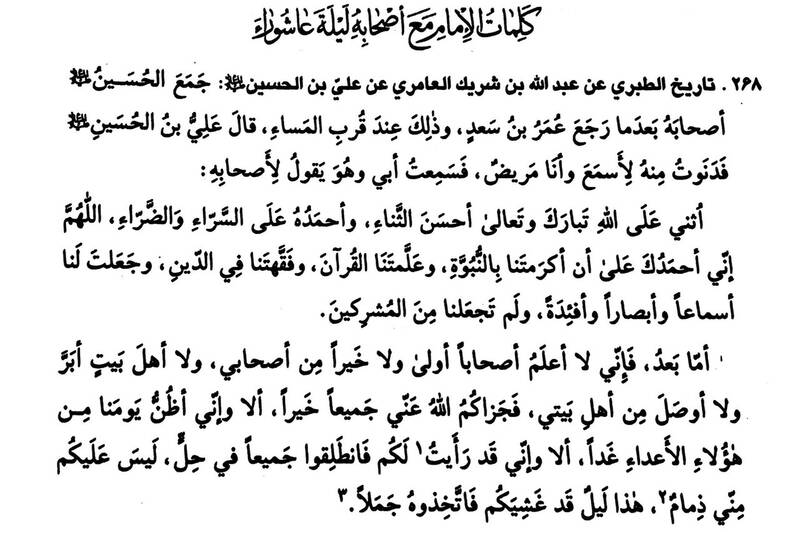 كَلِماتُ الإمامِ مَعَ أصحابِهِ لَيْلَةَ عاشوراءَ
٢٦٨ . تاريخ الطبري عن عبد الله بن شريك العامري عن عليّ بن الحسين ﷺ: جَمَعَ الحُسَـينُ ﷺ
أصحابَهُ بَعدَما رَجَعَ عُمَرُ بنُ سَعدٍ، وذٰلِكَ عِندَ قُربِ المَساءِ، قالَ عَلِيُّ بنُ الحُسَينِ ﷺ
فَدَنَوتُ مِنهُ لِأَسمَعَ وأنَا مَريضٌ، فَسَمِعتُ أبي وهُوَ يَقولُ لِأَصحابِهِ:
اُثني عَلَى اللهِ تَبارَكَ وتَعالىٰ أحسَنَ الثَّناءِ، وأحمَدُهُ عَلَى السَّرّاءِ وَالضَّرّاءِ، اللّٰهُمَّ
إنّي أحمَدُكَ عَلىٰ أن أكرَمتَنا بِالنُّبُوَّةِ، وعَلَّمتَنَا القُرآنَ، وفَقَّهتَنا فِي الدّينِ، وجَعَلتَ لَنا
أسماعاً وأبصاراً وأفئِدَةً، ولَم تَجعَلنا مِنَ المُشرِكينَ.
أمّا بَعدُ، فَإِنّي لا أعلَمُ أصحاباً أولىٰ ولا خَيراً مِن أصحابي، ولا أهلَ بَيتٍ أبَرَّ
ولا أوصَلَ مِن أهلِ بَيتي، فَجَزاكُمُ اللهُ عَنّي جَميعاً خَيراً، ألا وإنّي أظُنُّ يَومَنا مِـن
هٰؤُلاءِ الأَعداءِ غَداً، ألا وإنّي قَد رَأَيتُ١ لَكُم فَانطَلِقوا جَميعاً في حِلٍّ، لَيسَ عَلَيكُم
مِنّي ذِمامٌ٢، هٰذا لَيلٌ قَد غَشِيَكُم فَاتَّخِذوهُ جَمَلاً.٣